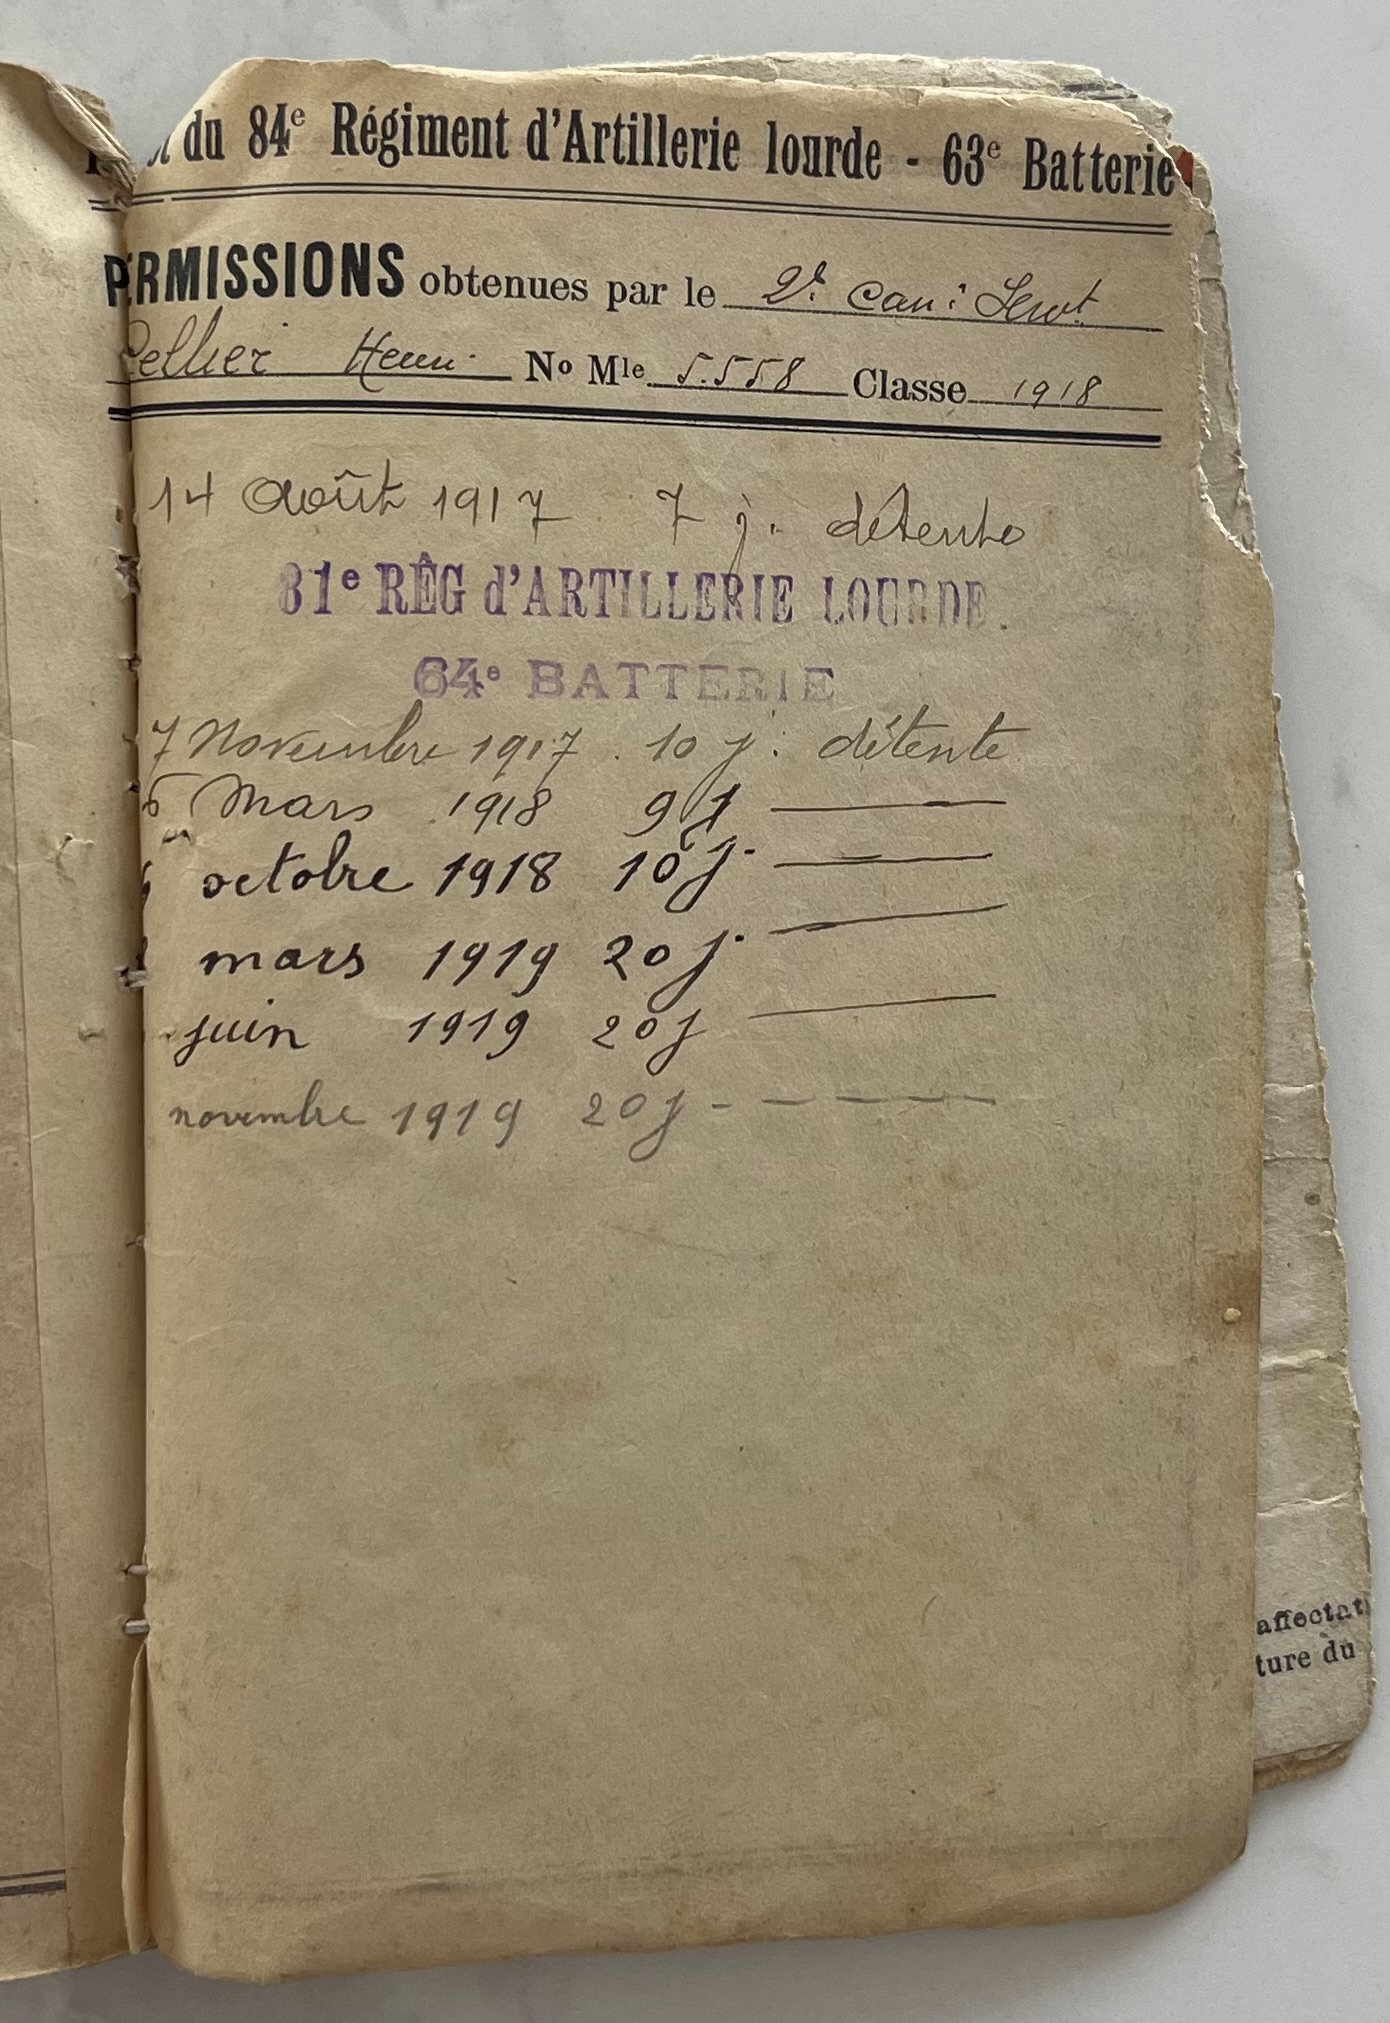 du 84e Régiment d'Artillerie lourde - 63e Batterie
PERMISSIONS obtenues par le 2e can: Servt
Pellier Henri No Mle 5.558 Classe 1918
14 Août 1917 7 j. détente
81e RÊG d'ARTILLERIE LOURDE.
64e BATTERIE
7 Novembre 1917. 10 j. détente
6 Mars 1918 9 j ———
octobre 1918 10 j. ———
mars 1919 20 j. ———
juin 1919 20 j ———
novembre 1919 20 j - — — — —
affectat
ture du